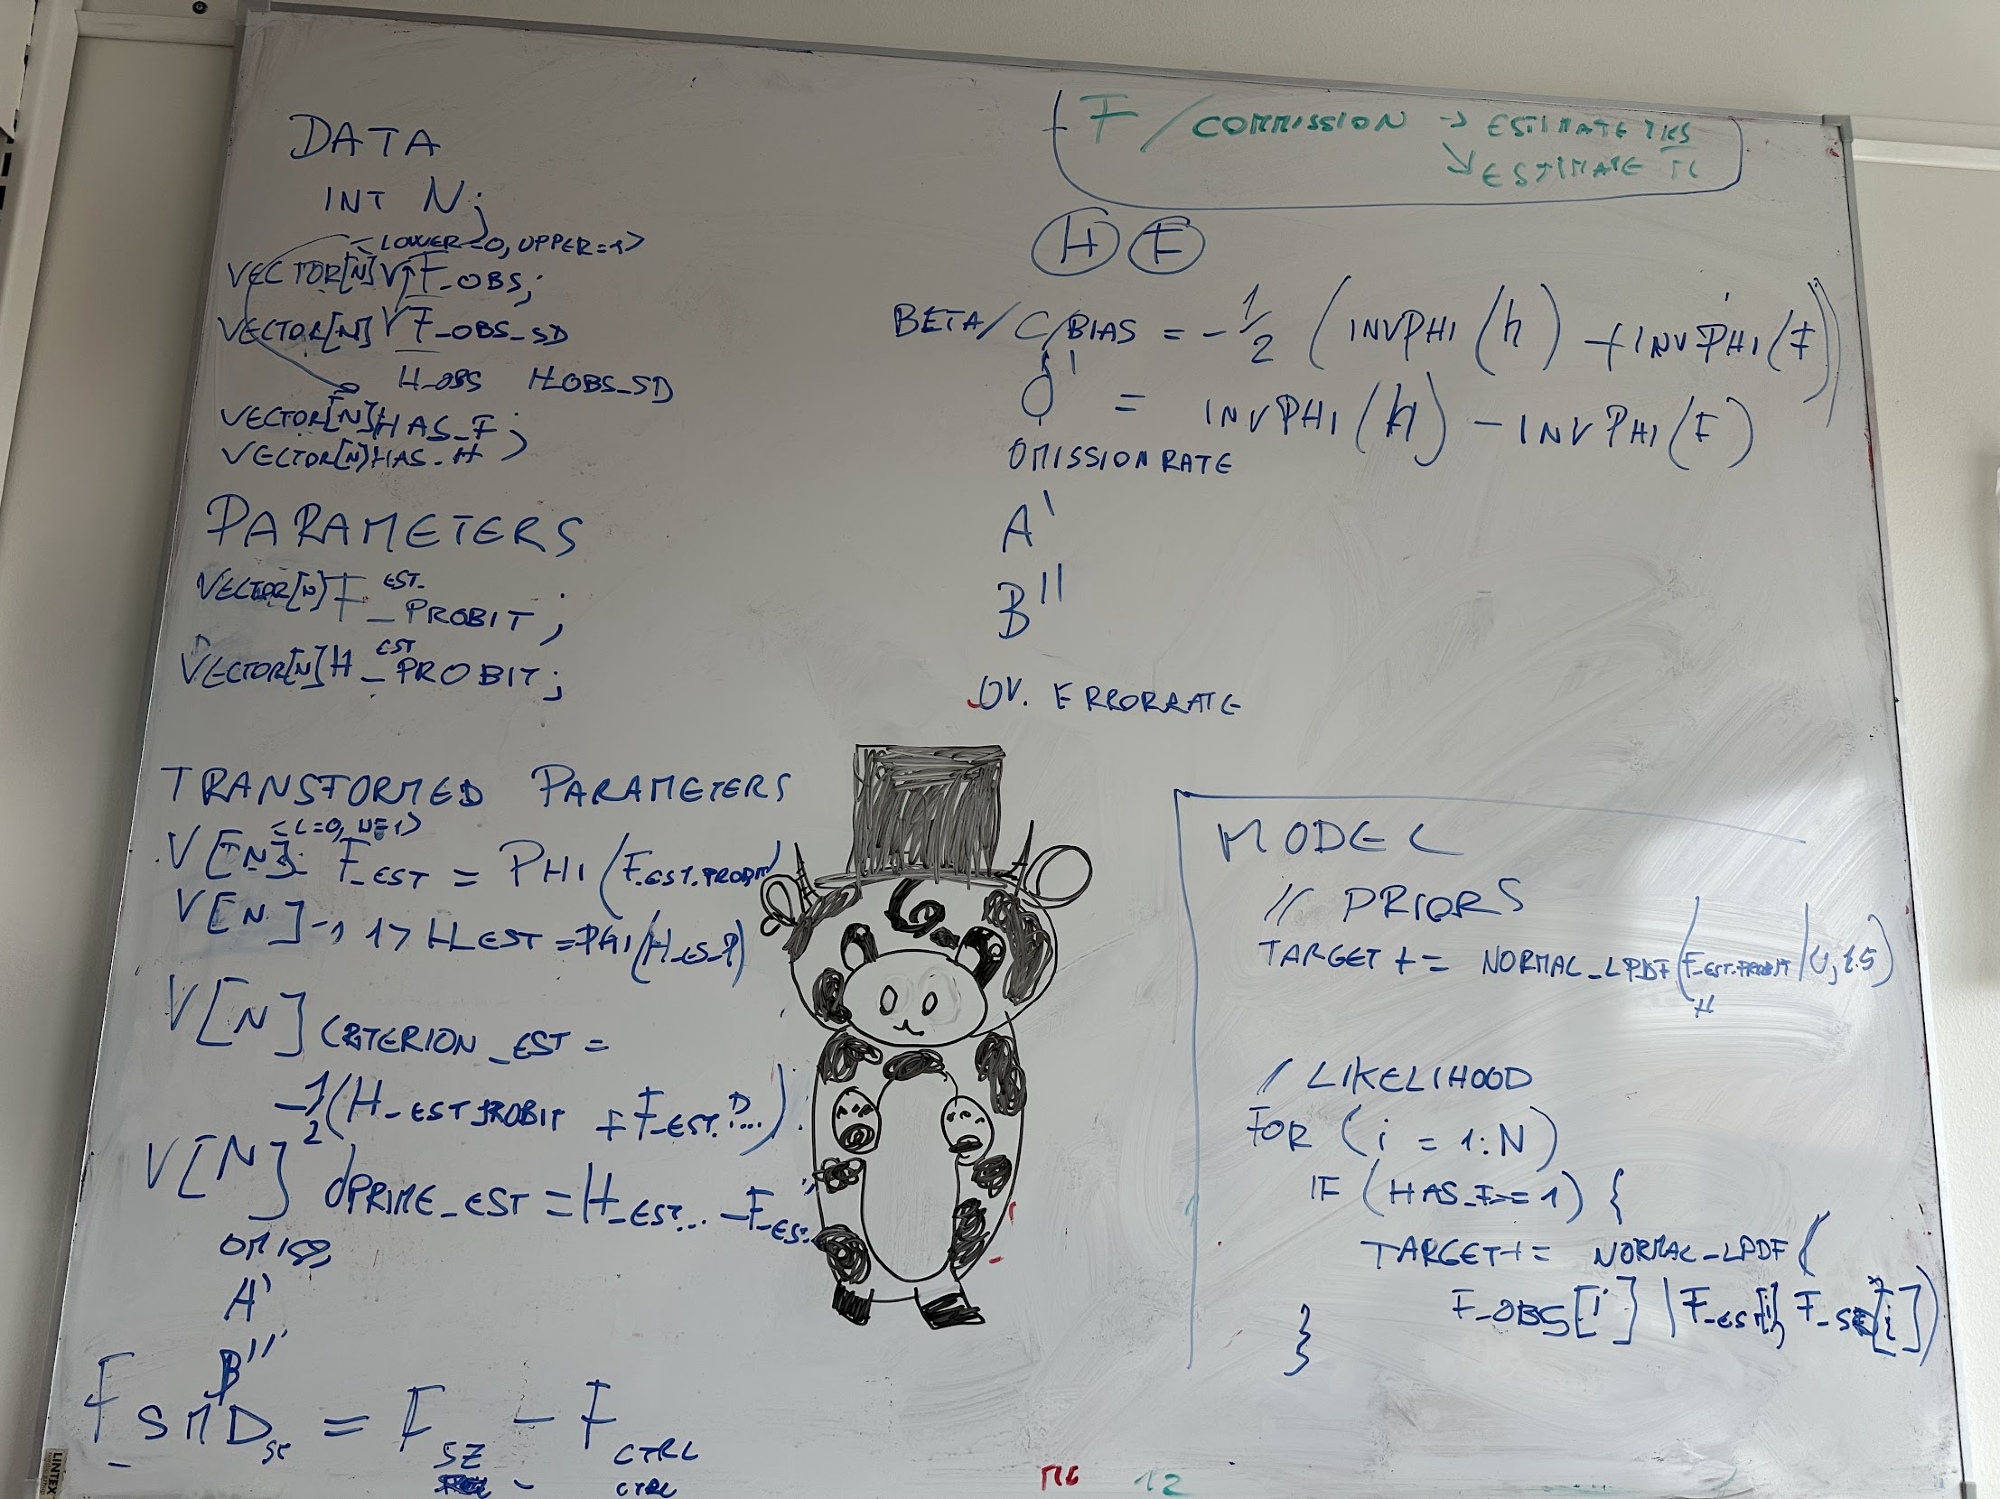 DATA
INT N;
<LOWER=0, UPPER=1>
VECTOR[N] F_OBS;
VECTOR[N] F_OBS_SD
H_OBS H_OBS_SD
VECTOR[N] HAS_F;
VECTOR[N] HAS_H;
PARAMETERS
VECTOR[N] F_EST_PROBIT;
VECTOR[N] H_EST_PROBIT;
TRANSFORMED PARAMETERS
<L=0, U=1>
V[N] F_EST = PHI(F_EST_PROBIT)
V[N] H_EST = PHI(H_ES_P)
V[N] CRITERION_EST =
-1/2(H_EST PROBIT + F_EST.P...)
V[N] dPRIME_EST = H_EST... - F_EST..
OMISS,
A'
B''
F_SMD = F SZ - F CTRL
CTRL
F/COMMISSION → ESTIMATE
↘ ESTIMATE
H F
BETA/C/BIAS = -1/2 (INVPHI(h) + INVPHI(F))
d' = INVPHI(h) - INVPHI(F)
OMISSION RATE
A'
B''
OV. ERROR RATE
MODEL
// PRIORS
TARGET += NORMAL_LPDF(F_EST.PROBIT | 0, 1.5)
H
/ LIKELIHOOD
FOR (i = 1:N)
IF (HAS_F == 1) {
TARGET += NORMAL_LPDF(
F_OBS[i] | F_EST[i], [i])
}
12
LINTEX